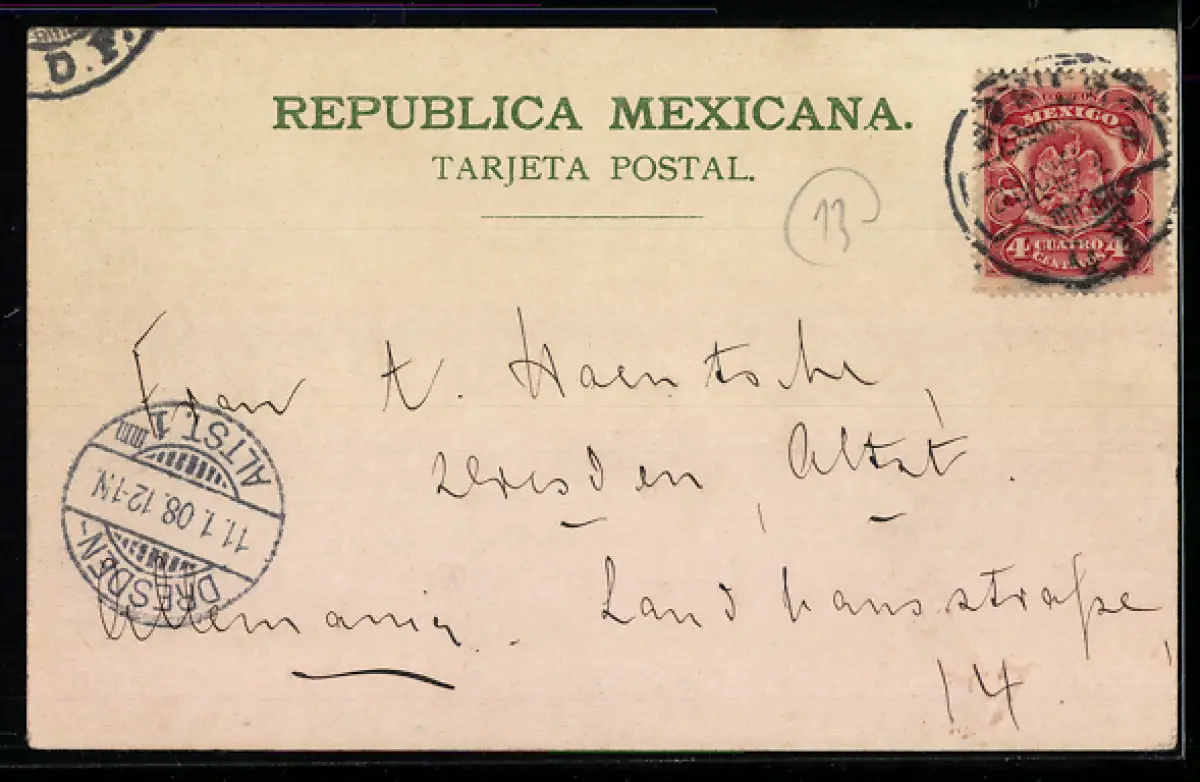 D. F.
REPUBLICA MEXICANA.
TARJETA POSTAL.
MEXICO
4 CUATRO 4
CENTAVOS
13
Frau A. Haentsche,
Dresden, Altst.
Landhausstraße,
14.
Allemania.
DRESDEN-
11.1.08.12-1.N.
ALTST. 1